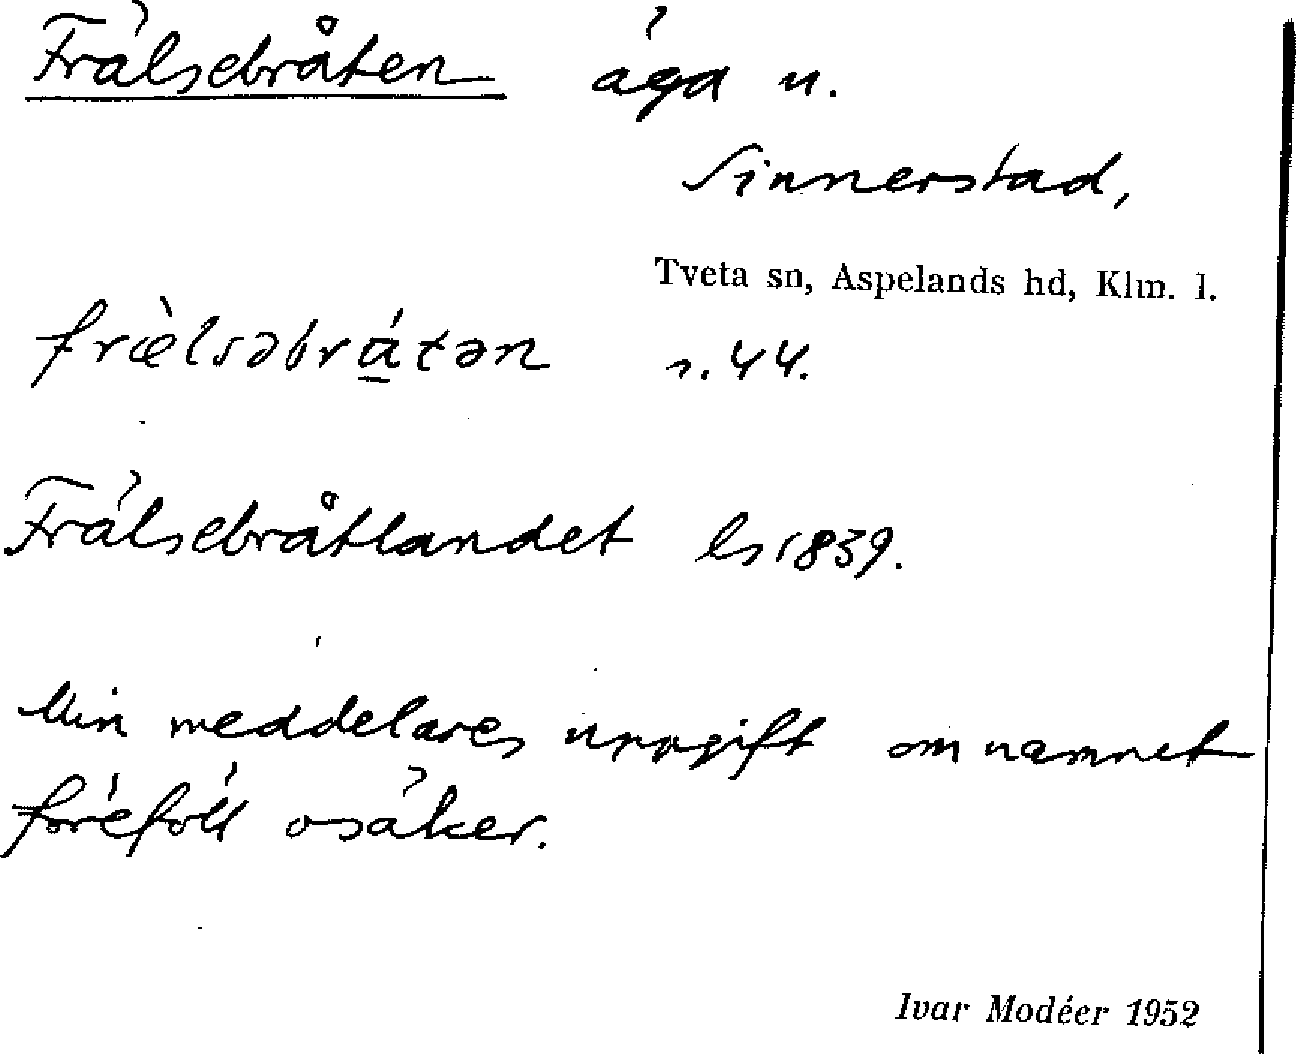 Frälsebråten äga n.
Sinnerstad,
Tveta sn, Aspelands hd, Klm. l.
fræ̀lsəbrá̱tən s. 44.
Frälsebråtlandet ls 1839.
Min meddelares uppgift om namnet
föreföll osäker.
Ivar Modéer 1952